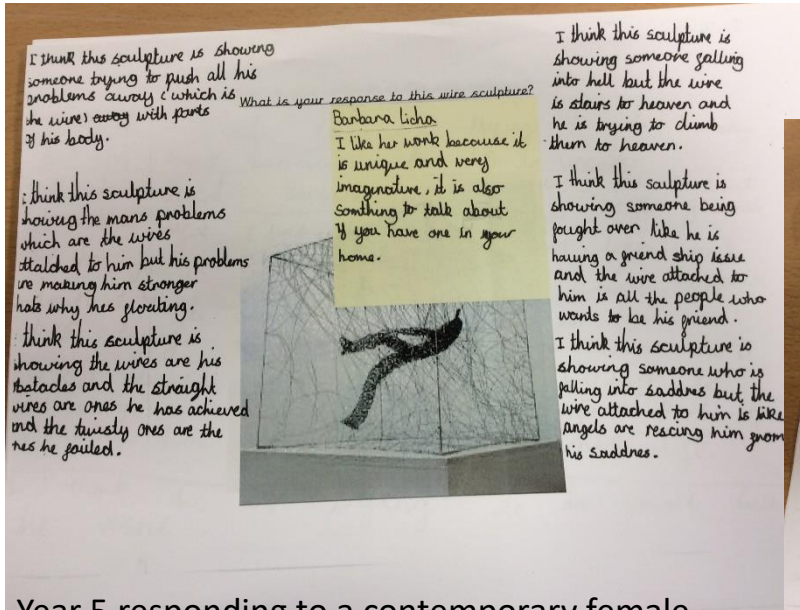 I think this sculpture is showing
someone trying to push all his
problems away (which is
the wire) away with parts
of his body.
i think this sculpture is
showing the mans problems
which are the wires
attatched to him but his problems
are making him stronger
thats why hes floating.
i think this sculpture is
showing the wires are his
obstacles and the straight
wires are ones he has achieved
and the twisty ones are the
ones he failed.
What is your response to this wire sculpture?
Barbara Licha
I like her work becouse it
is unique and very
imaginative, it is also
somthing to talk about
if you have one in your
home.
I think this sculpture is
showing someone falling
into hell but the wire
is stairs to heaven and
he is trying to climb
them to heaven.
I think this sculpture is
showing someone being
fought over like he is
having a friend ship issue
and the wire attached to
him is all the people who
wants to be his friend.
I think this sculpture is
showing someone who is
falling into saddnes but the
wire attached to him is like
angels are rescing him from
his saddnes.
Year 5 responding to a contemporary female